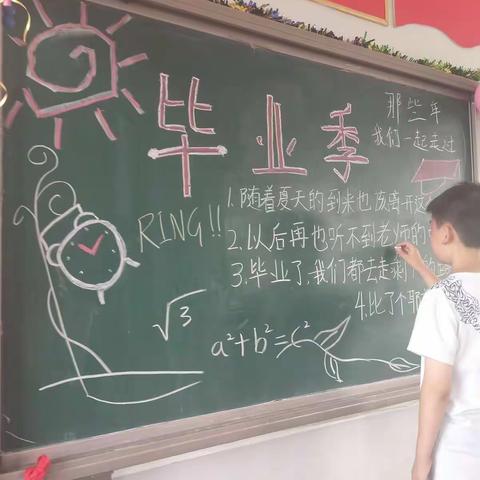 毕业季
那些年
我们一起走过
RING!!
1.随着夏天的到来也该离开这
2.以后再也听不到老师的
3.毕业了,我们都去走
4.比了个耶
√3
a²+b²=c²